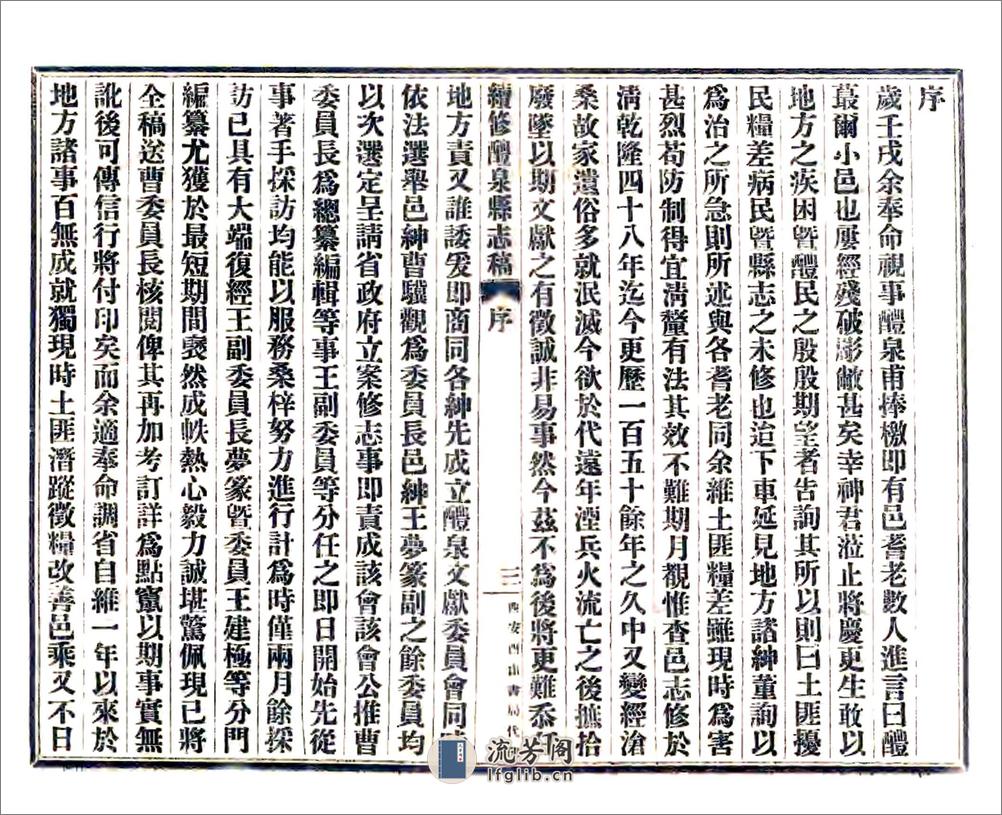 序
歲壬戌余奉命視事醴泉甫捧檄即有邑耆老數人進言曰醴
蕞爾小邑也屢經殘破彫敝甚矣幸神君蒞止將慶更生敢以
地方之疾困曁醴民之殷殷期望者告詢其所以則曰土匪擾
民糧差病民曁縣志之未修也迨下車延見地方諸紳董詢以
爲治之所急則所述與各耆老同余維土匪糧差雖現時爲害
甚烈苟防制得宜淸釐有法其效不難期月覩惟查邑志修於
淸乾隆四十八年迄今更歷一百五十餘年之久中又變經滄
桑故家遺俗多就泯滅今欲於代遠年湮兵火流亡之後摭拾
廢墜以期文獻之有徵誠非易事然今茲不爲後將更難忝
續修醴泉縣志稿
序
三
西安酉山書局代
地方責又誰諉爰即商同各紳先成立醴泉文獻委員會同
依法選舉邑紳曹驥觀爲委員長邑紳王夢篆副之餘委員均
以次選定呈請省政府立案修志事即責成該會該會公推曹
委員長爲總纂編輯等事王副委員等分任之即日開始先從
事著手採訪均能以服務桑梓努力進行計爲時僅兩月餘採
訪已具有大端復經王副委員長夢篆曁委員王建極等分門
編纂尤獲於最短期間裒然成帙熱心毅力誠堪驚佩現已將
全稿送曹委員長核閱俾其再加考訂詳爲點竄以期事實無
訛後可傳信行將付印矣而余適奉命調省自維一年以來於
地方諸事百無成就獨現時土匪潛蹤徵糧改善邑乘又不日
流芳阁
lfglib.cn